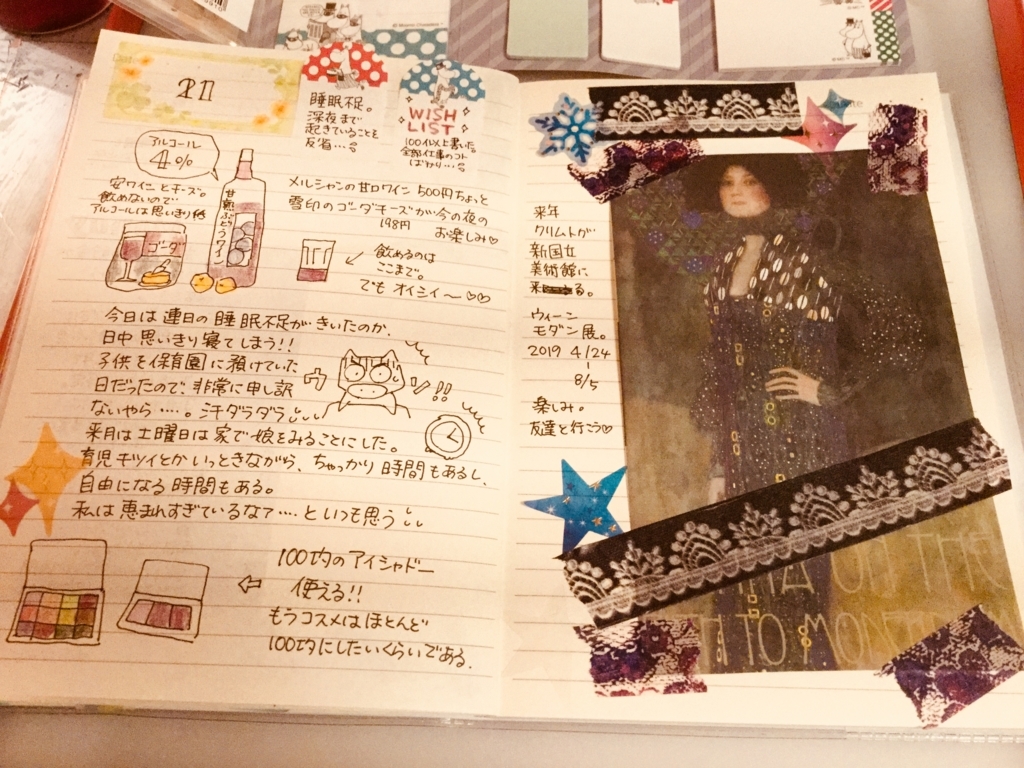 睡眠不足。
深夜まで
起きていることを
反省…
WISH
LIST
100個以上書いた。
全部仕事のコト
ばかり…
アルコール
4%
安ワインとチーズ。
飲めないので
アルコールは思いきり低
ゴーダ
甘熟ぶどうワイン
メルシャンの甘口ワイン 500円ちょっと
雪印のゴーダチーズが今の夜の
198円
お楽しみ♡
飲めるのは
ここまで。
でも オイシイ〜♡♡
今日は連日の睡眠不足がきいたのか、
日中思いきり寝てしまう!!
子供を保育園に預けていた
日だったので、非常に申し訳
ないやら‥‥。汗ダラダラ
ウ
ッ!!
来月は土曜日は家で娘をみることにした。
育児キツイとかいっときながら、ちゃっかり時間もあるし、
自由になる時間もある。
私は恵まれすぎているなて‥‥といつも思う
100均のアイシャドー
使える!!
もうコスメはほとんど
100均にしたいくらいである。
来年
クリムトが
新国立
美術館に
来る。
ウィーン
モダン展。
2019 4/24
-
8/5
楽しみ。
友達と行こう♡